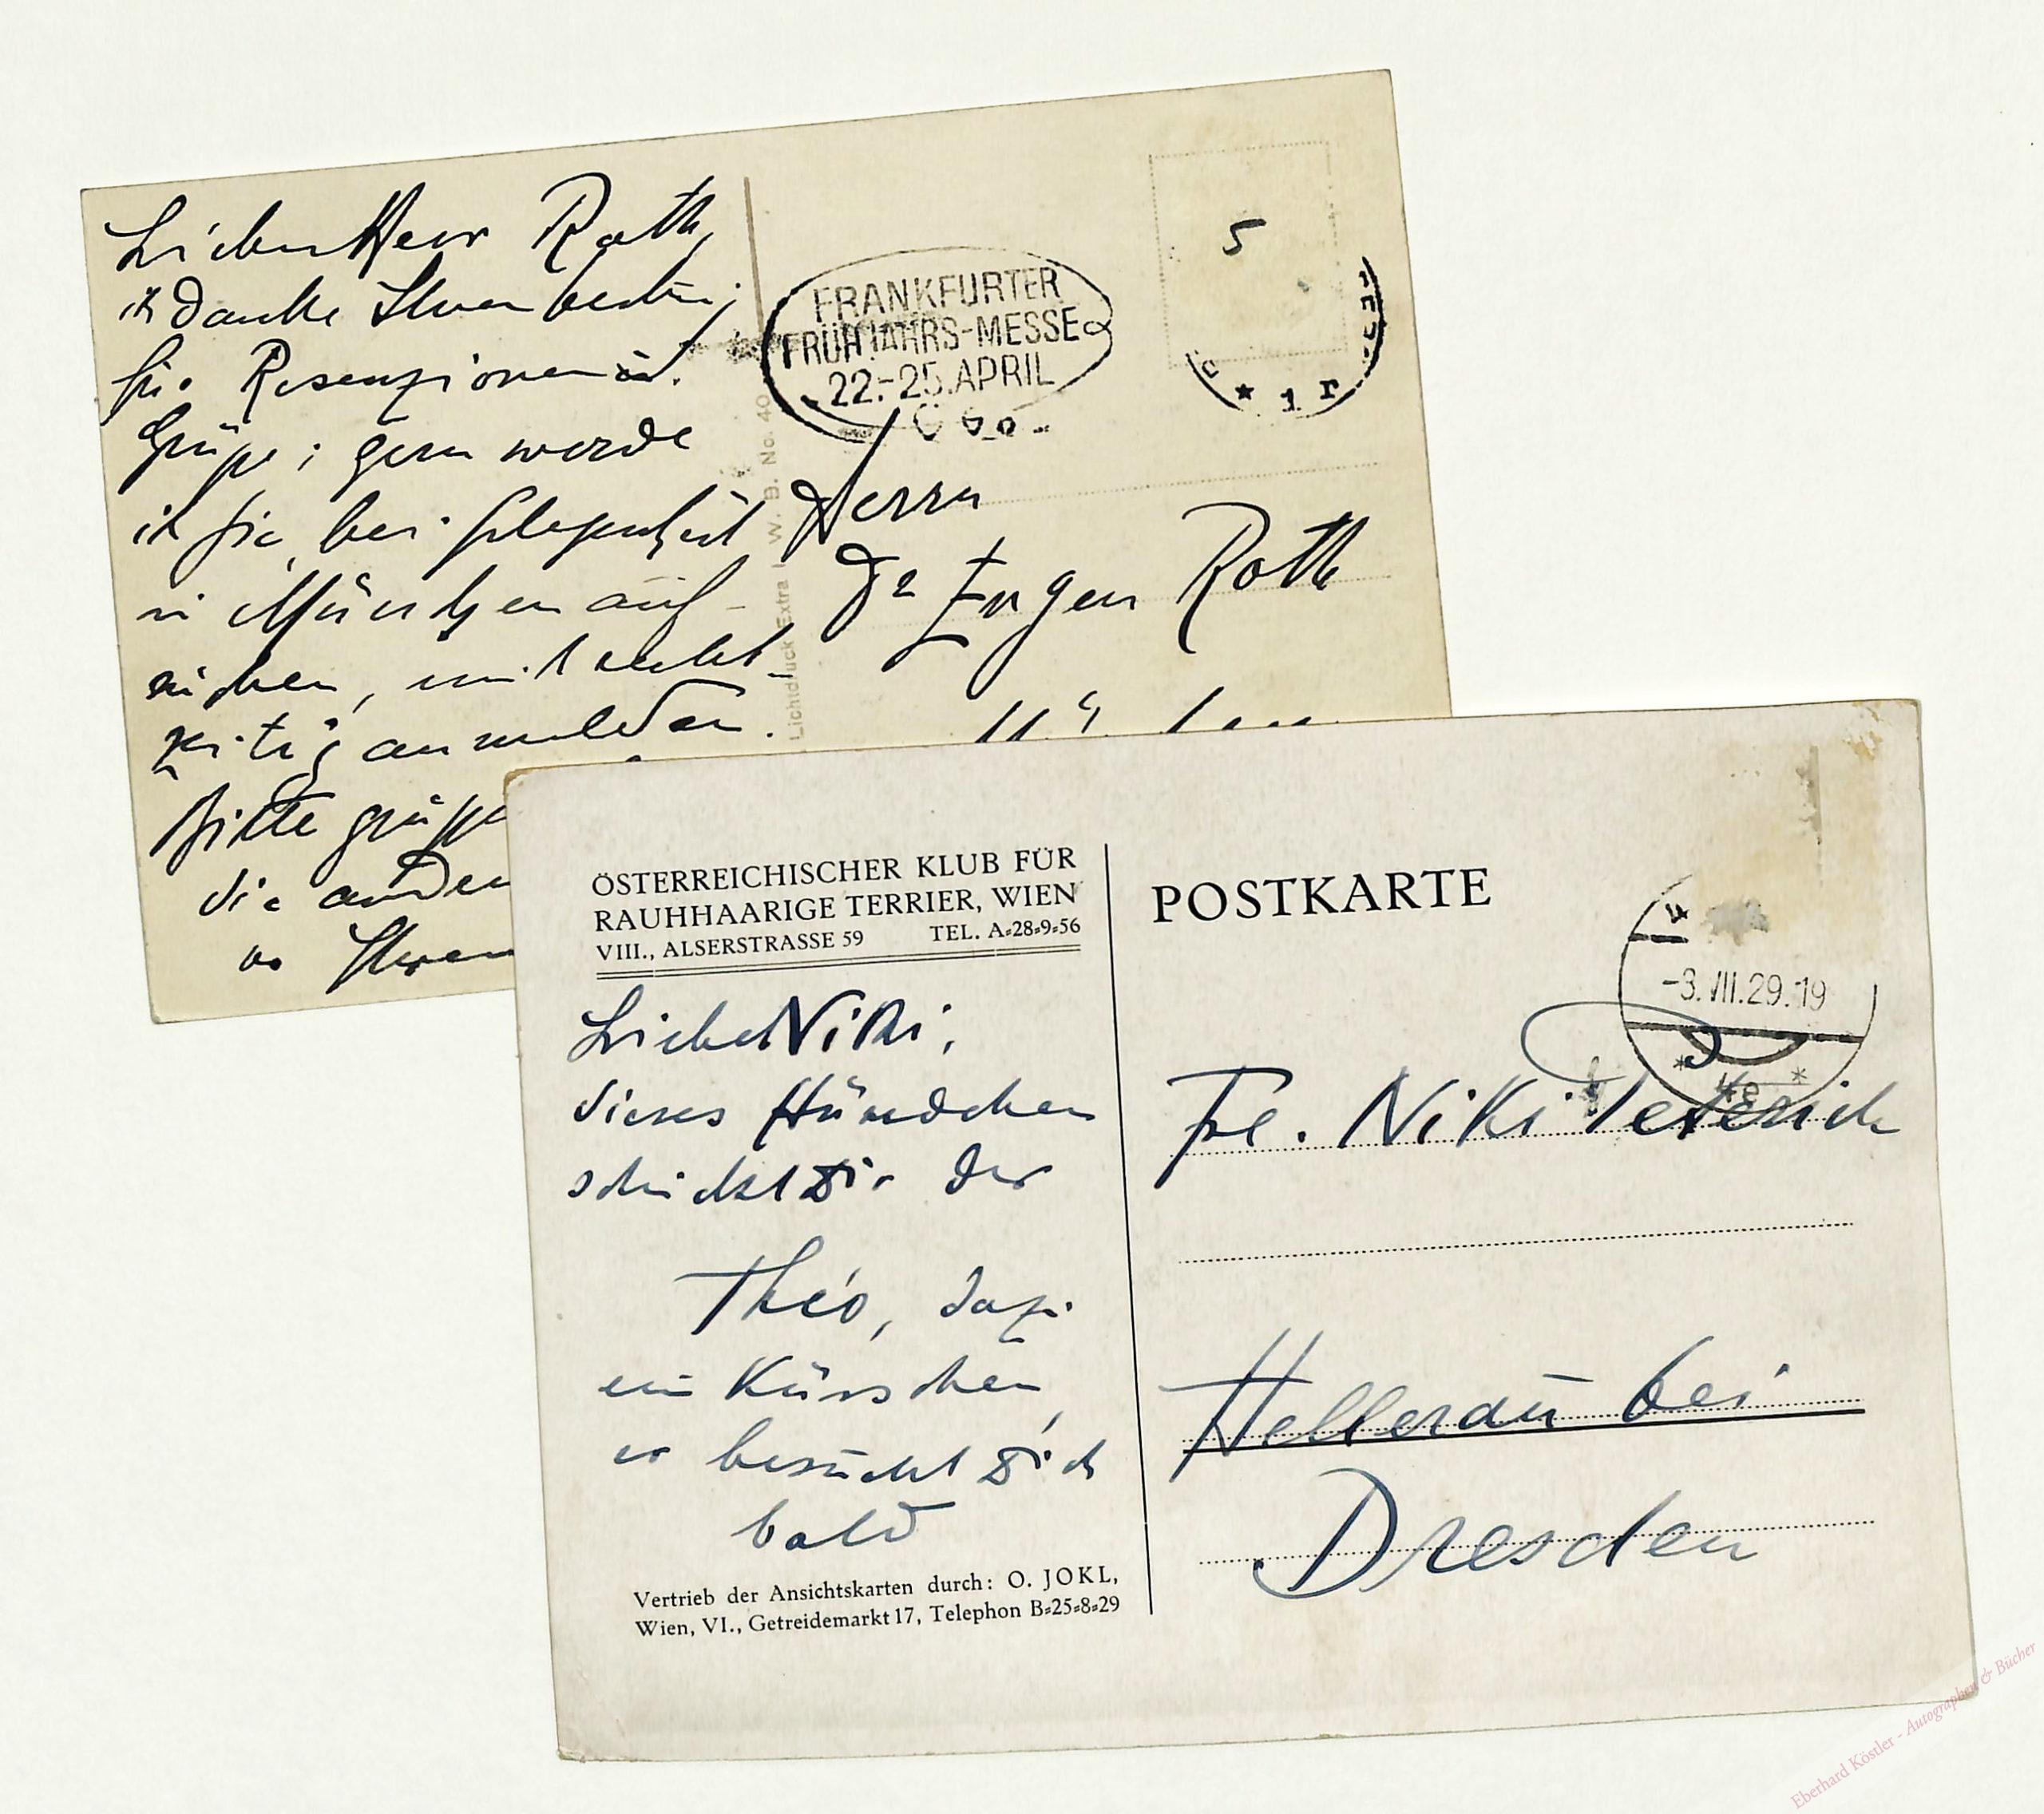 Lieber Herr Roth,
ich danke Ihnen bestens
für Rezensionen u.
Grüße; gern werde
ich Sie bei Gelegenheit
in München auf-
suchen, mit recht-
zeitig anmelden.
Bitte grüßen
die anderen
Ihrem
FRANKFURTER
FRÜHJAHRS-MESSE
22.-25. APRIL
5
* 1 r
Lichtdruck Extra I W. B. No. 40
Herrn
Dr Eugen Roth
München
ÖSTERREICHISCHER KLUB FÜR
RAUHHAARIGE TERRIER, WIEN
VIII., ALSERSTRASSE 59 TEL. A=28=9=56
Liebe Niki,
dieses Hündchen
schickt Dir der
Théo, dazu
ein Küsschen,
er besucht Dich
bald
Vertrieb der Ansichtskarten durch: O. JOKL,
Wien, VI., Getreidemarkt 17, Telephon B=25=8=29
POSTKARTE
-3.VII.29.19
Frl. Niki
Hellerau bei
Dresden
Eberhard Köstler - Autographen & Bücher